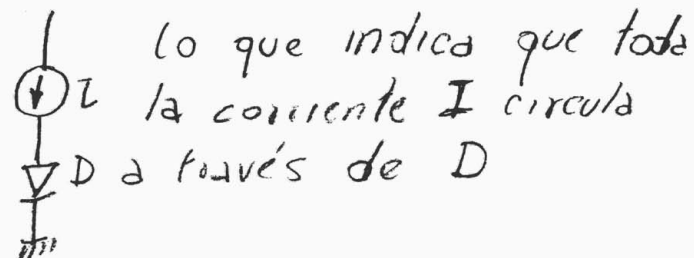 lo que indica que toda
I la corriente I circula
D a través de D